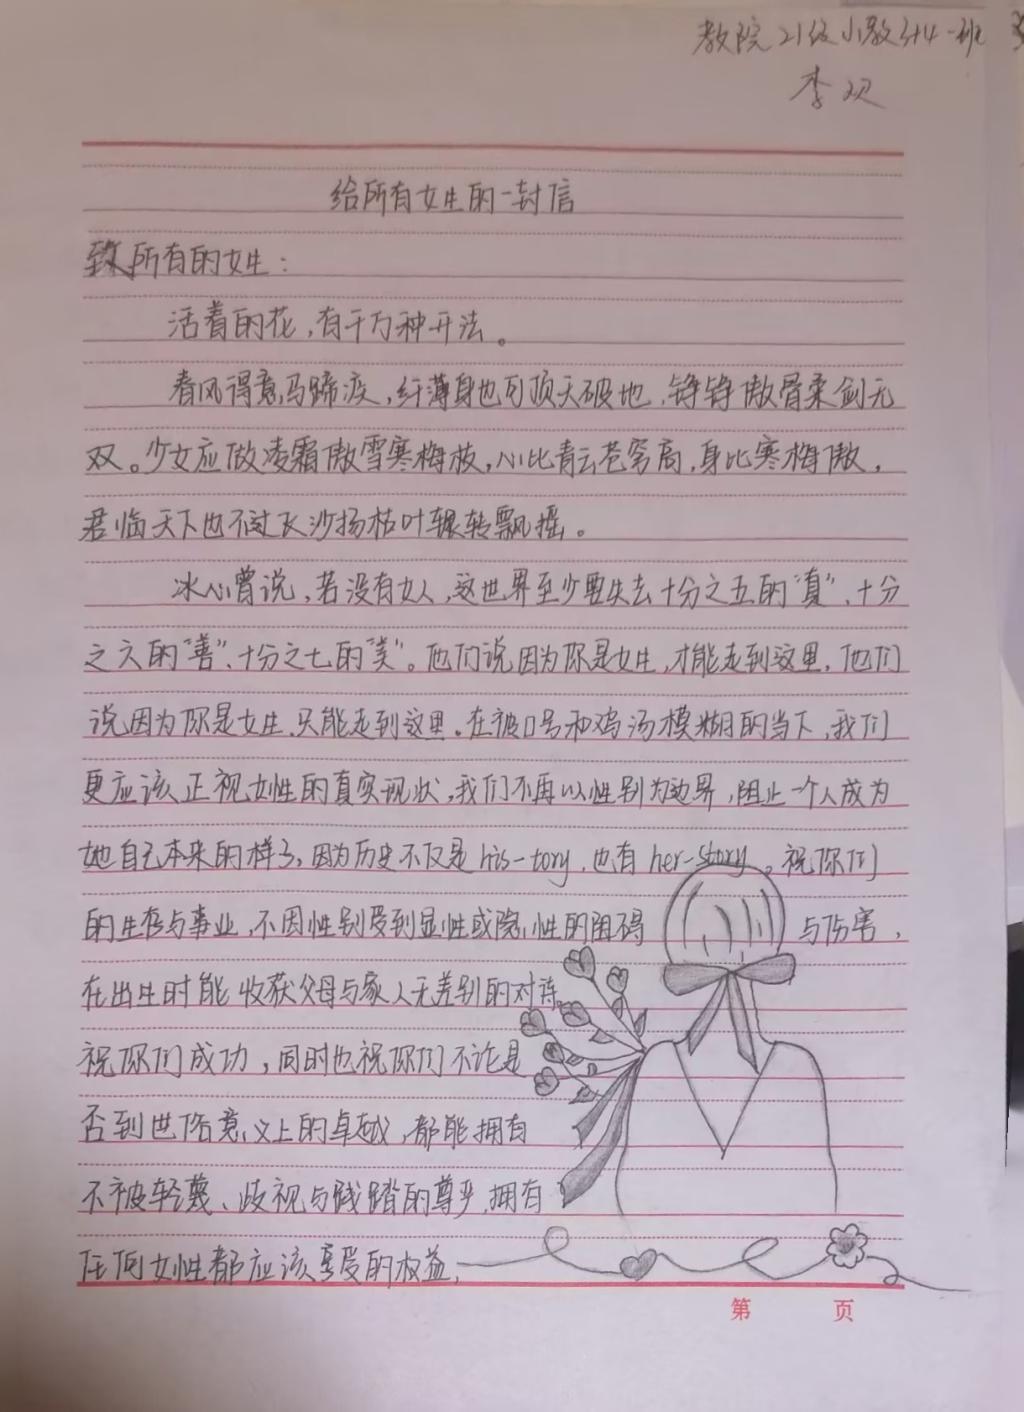 教院21级小教34一班
李欢
给所有女生的一封信
致所有的女生：
活着的花，有千万种开法。
春风得意马蹄疾，纤薄身也可顶天破地，铮铮傲骨柔剑无
双。少女应做凌霜傲雪寒梅枝，心比青云苍穹高，身比寒梅傲，
君临天下也不过飞沙扬枯叶辗转飘摇。
冰心曾说，若没有女人，这世界至少要失去十分之五的“真”、十分
之六的“善”、十分之七的“美”。他们说因为你是女生，才能走到这里，他们
说因为你是女生，只能走到这里。在被口号和鸡汤模糊的当下，我们
更应该正视女性的真实现状，我们不再以性别为边界，阻止一个人成为
她自己本来的样子，因为历史不仅是his-tory，也有her-story。祝你们
的生存与事业，不因性别受到显性或隐性的阻碍与伤害，
在出生时能收获父母与家人无差别的对待。
祝你们成功，同时也祝你们不论是
否到世俗意义上的卓越，都能拥有
不被轻蔑、歧视与践踏的尊严，拥有
任何女性都应该享受的权益，
第 页